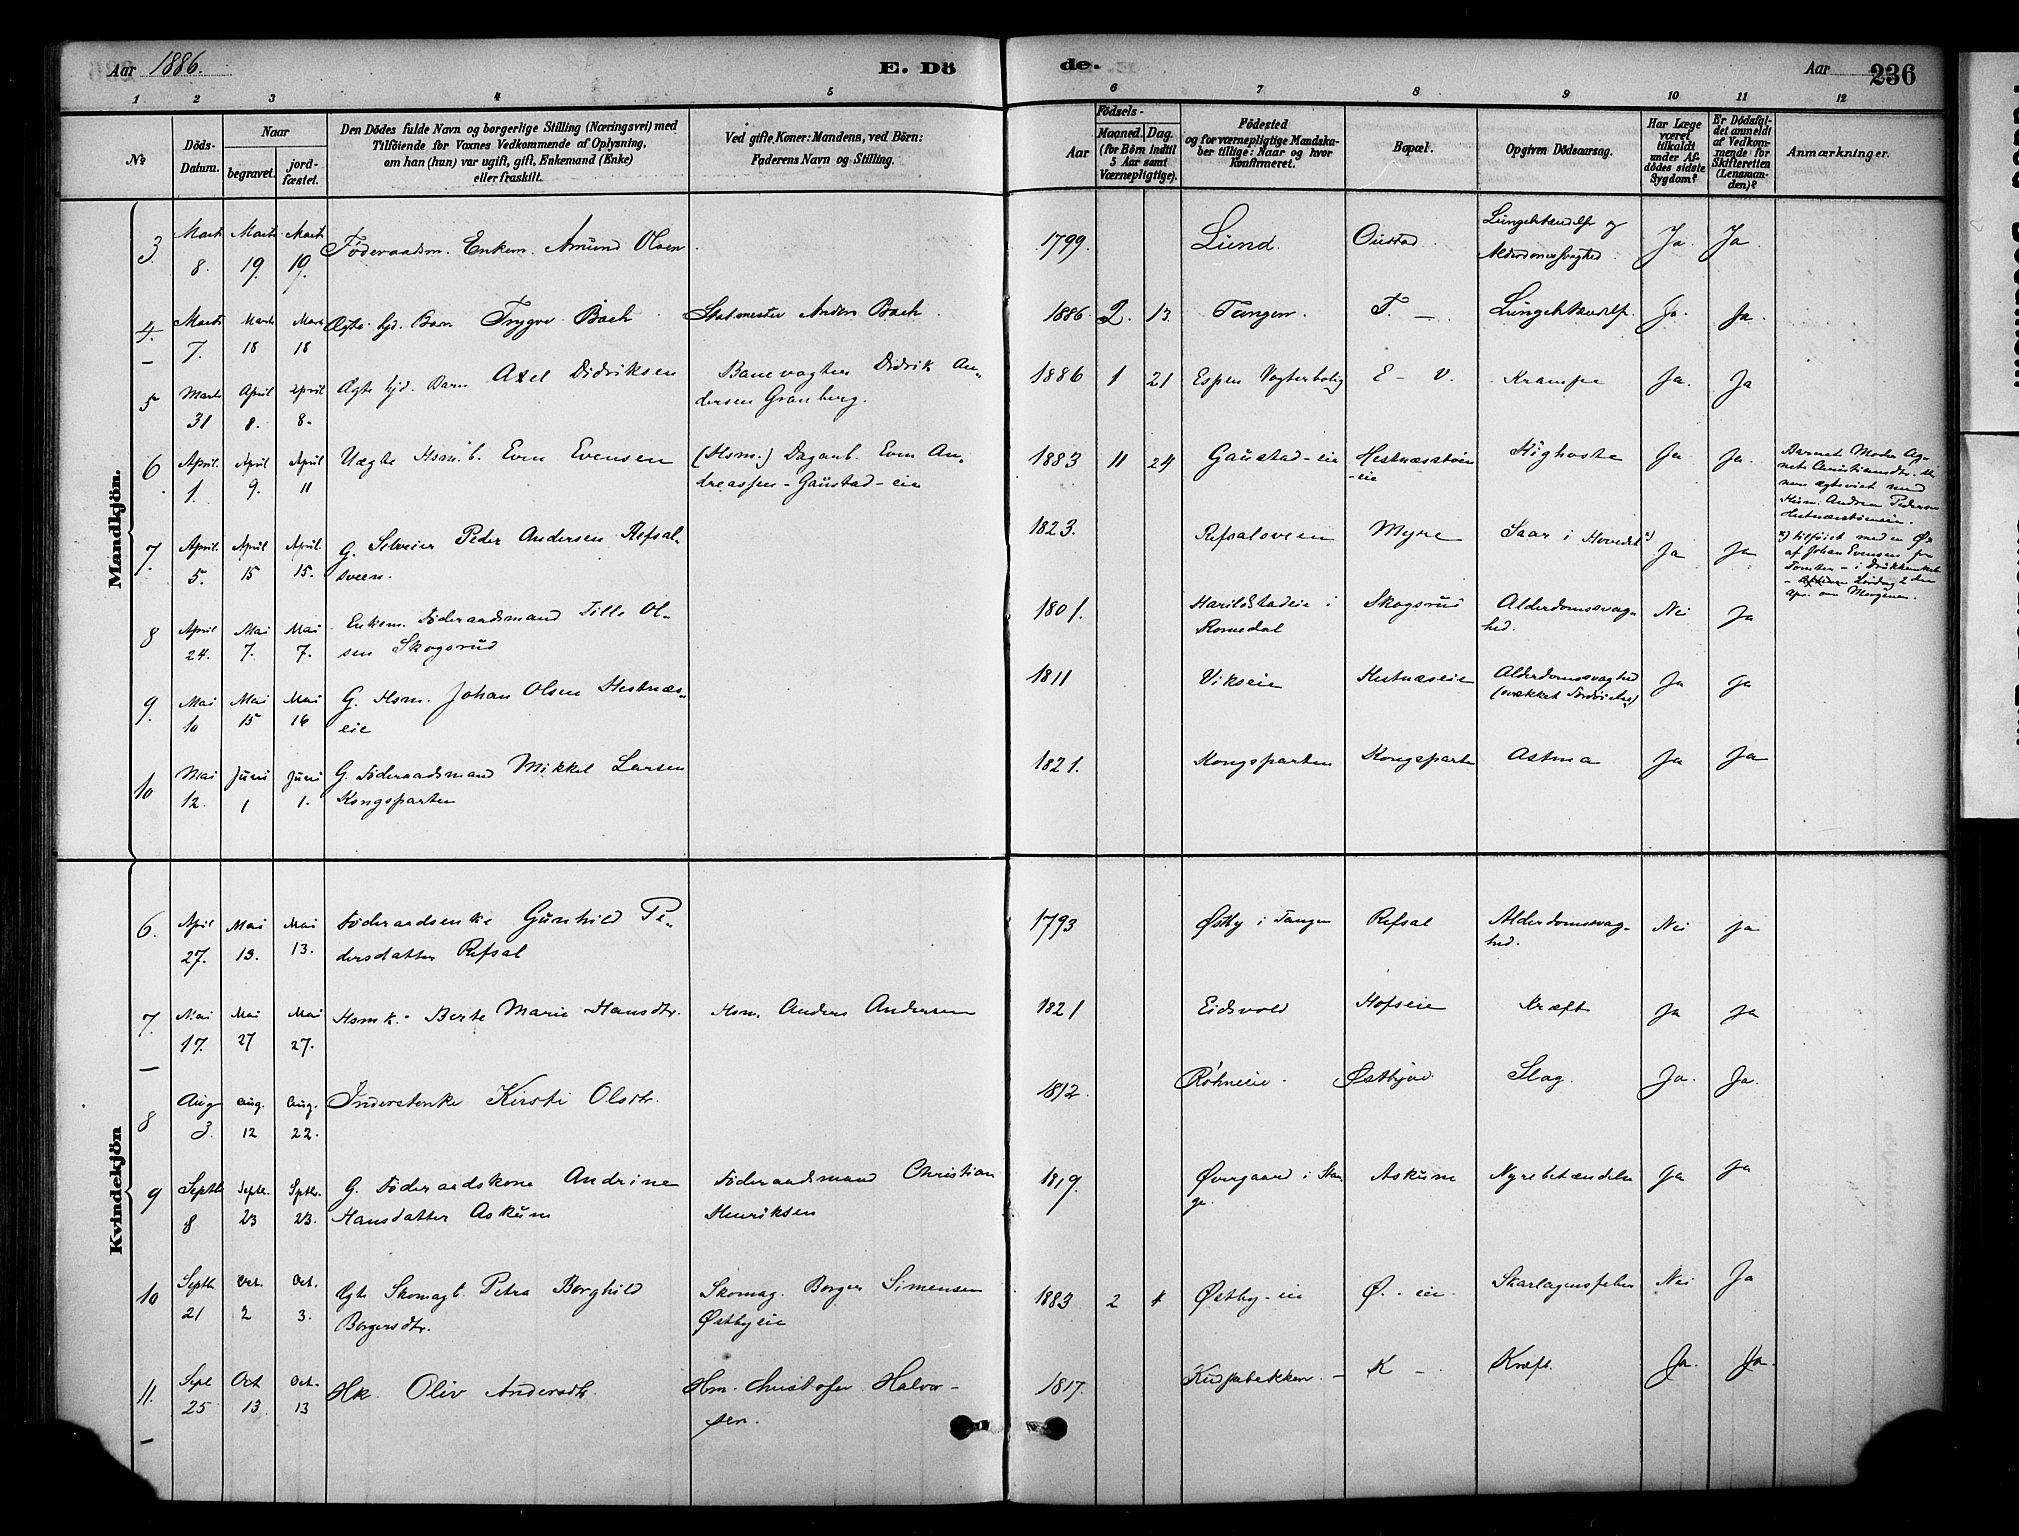 Aar 1886.
E. Döde.
Aar
236
1 2 3 4 5 6 7 8 9 10 11 12
No
Döds-Datum.
Naar
begravet.
jordfæstet.
Den Dödes fulde Navn og borgerlige Stilling (Næringsvei) med
Tilföiende for Voxnes Vedkommende af Oplysning,
om han (hun) var ugift, gift, Enkemand (Enke)
eller fraskilt.
Ved gifte Koner: Mandens, ved Börn:
Faderens Navn og Stilling.
Födsels-
Aar
Maaned.
Dag.
(for Börn indtil
5 Aar samt
Værnepligtige).
Födested
og for værnepligtige Mandska-
ber tillige: Naar og hvor
Konfirmeret.
Bopæl.
Opgiven Dödsaarsag.
Har Læge
været
tilkaldt
under Af-
dödes sidste
Sygdom?
Er Dödsfal-
det anmeldt
af Vedkom-
mende for
Skifteretten
(Lensman-
den)?
Anmærkninger.
Mandkjön.
3. Marts 8. Marts 19. Marts 19. Föderaadsm. Enkem. Amund Olsen 1799. Lund. Ja. Ja.
Alderdomssvaghed.
4. Marts 7. Marts 18 Marts 18 Ægte hjd. Barn Trygve Bach Anders Bach. 1886. 2. 13. Tangen. T. — Ja. Ja.
5 Marts 31 April 8. April 8. Ægte hjd. Barn Axel Didriksen Banevogter Didrik An-
dersen Granberg. 1886 1 21 Espen Vogterbolig E – V. Krampe Ja. Ja
6. April 1. April 9. April 11 Uægte Hsm.b. Even Evensen (Hsm.) Dagarb. Even An-
dreassen – Gaustad-eie 1883 11 24 Gaustad-eie Hestnæsstöen
-eie Kighoste Ja Ja. Barnet Moder Ag-
7. April 5. April 15 April 15. G. Selveier Peder Andersen Refsal-
sveen. 1823. Refsalsveen Myre Saar i Hovedet Ja Ja
8 April 24. Mai 7. Mai 7. Enkem. Föderaadsmand Tille Ol-
sen Skogsrud 1801. Harildstadeie i
Romedal Skogsrud Alderdomssvag-
hed. Nei Ja
9. Mai 10 Mai 15 Mai 16 G. Hsm. Johan Olsen Hestnæs-
eie 1811 Vikseie Hestnæseie Alderdomssvaghed Ja Ja
10 Mai 12. Juni 1 Juni 1. G. Föderaadsmand Mikkel Larsen
Kongsparten 1821. Kongsparten Kongsparten Astma Ja Ja
Kvindekjön
6. April 27. Mai 13. Mai 13. Föderaadsenke Gunhild Pe-
dersdatter Refsal 1793 Östby i Tangen Refsal Alderdomssvag-
hed. Nei Ja
7. Mai 17. Mai 27 Mai 27. Hsmk. Berte Marie Hansdtr. Hsm. Anders Andersen 1821 Eidsvold Hofseie Kræft Ja Ja
8 Aug 3. Aug. 12 Aug. 22. Inderstenke Kirsti Olsdtr. 1812. Östbyeie Slag. Ja. Ja.
9 Septb 8 Septr. 23 Septr. 23. G. Föderaadskone Andrine
Hansdatter Askum Föderaadsmand Christian
Henriksen 1819. Övergaard i Stan-
ge. Askum Nyrebetændelse Ja Ja
10 Septb 21 Oct. 2 Oct. 3. Ægte Skomagb. Petra Borghild
Borgersdtr. Skomag. Borger Simensen
Östbyeie 1883 2 4 Östby-eie Ö. - eie. Skarlagensfeber Nei Ja
11. Sept 25 Oct 13 Oct. 13 Hk. Oliv Andersdtr. Hm. Christofer Halvor-
sen. 1817. K – Kræft. Ja. Ja.